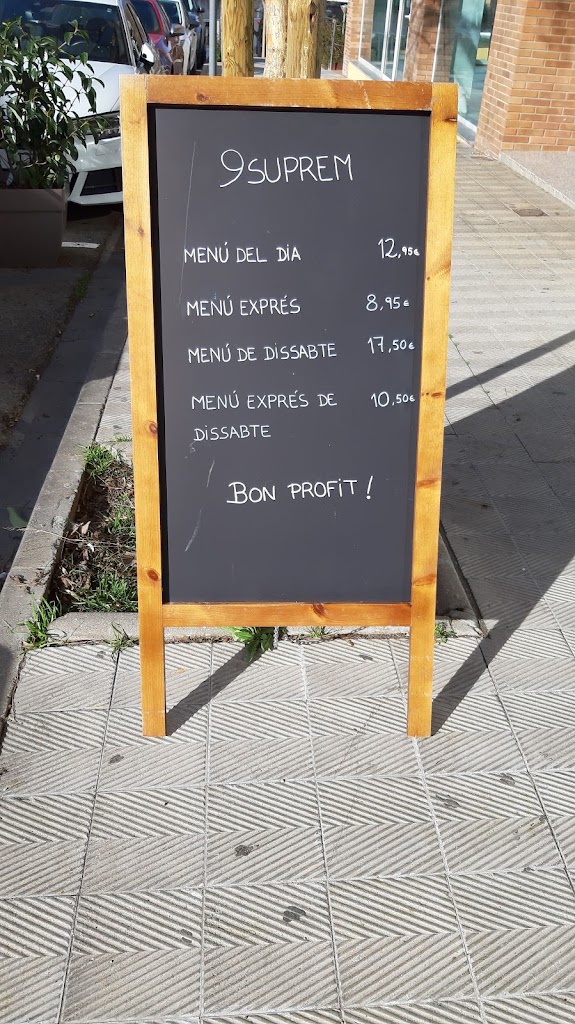 9SUPREM
MENÚ DEL DIA 12,95€
MENÚ EXPRÉS 8,95€
MENÚ DE DISSABTE 17,50€
MENÚ EXPRÉS DE 10,50€
DISSABTE
BON PROFIT!